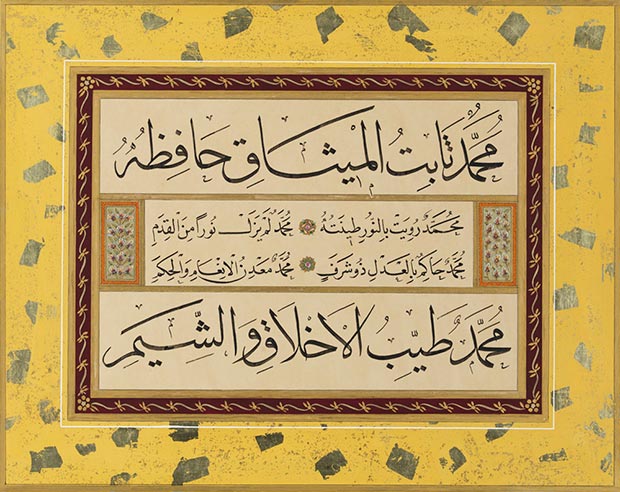 مُحَمَّدٌ ثَابِتُ الْمِيثَاقِ حَافِظُهُ
مُحَمَّدٌ رُوِيَتْ بِالنُّورِ طِينَتُهُ مُحَمَّدٌ لَمْ يَزَلْ نُورًا مِنَ الْقِدَمِ
مُحَمَّدٌ حَاكِمٌ بِالْعَدْلِ ذُو شَرَفٍ مُحَمَّدٌ مَعْدِنُ الْإِنْعَامِ وَالْحِكَمِ
مُحَمَّدٌ طَيِّبُ الْأَخْلَاقِ وَالشِّيَمِ